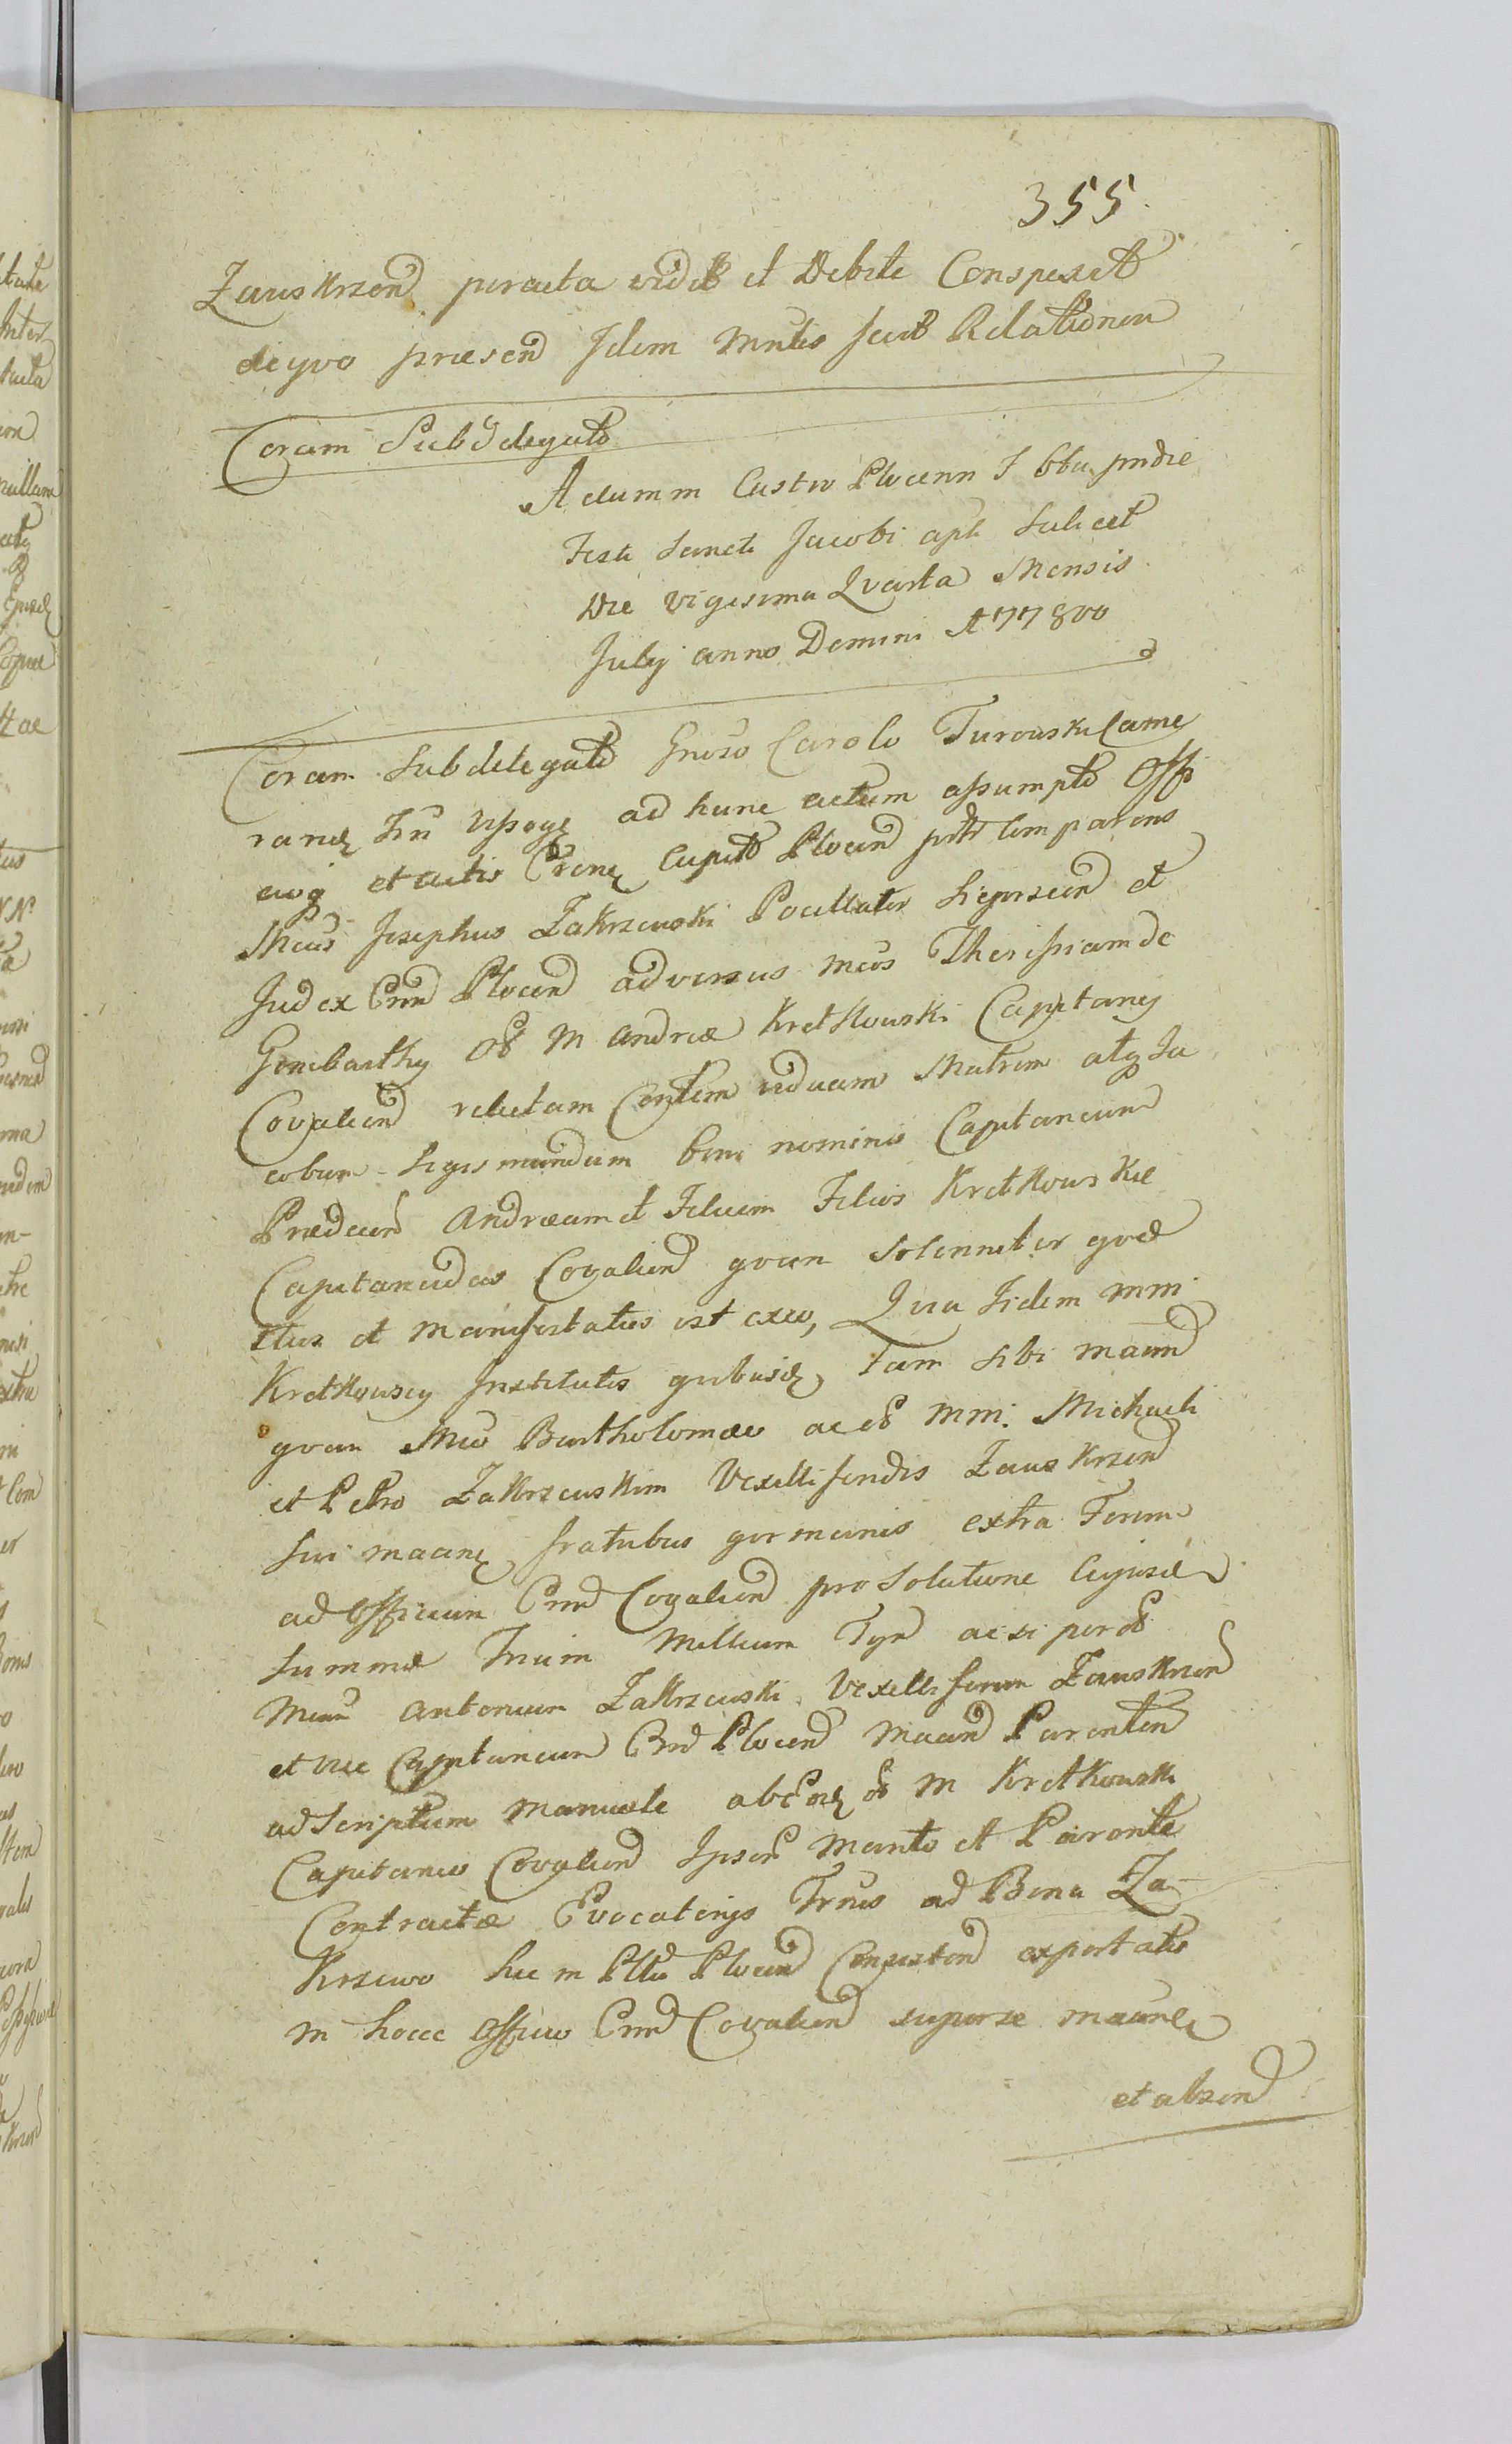 355.
Zawskrzen peracta vidit et Debite Conspexit
de qvo præsen Idem Mntlis fecit Relationem
Coram Subddelegato
Actum in Castro Plocenn F 6ta pridie
Festi Sancti Jacobi apli Scilicet
Die vigesima Qvarta Mensis
July anno Domini A 1778vo
Coram Subdelegato Gnoso Carolo Turowski Came
rario Trn Wyszog ad hunc actum assumpto Offi
cioq et actis Crens Capit Plocen psntibus Comparens
Mcus Josephus Zakrzewski Pocillator Sieprscen et
Judex Crn Plocen adversus Mcos Theressiam de
Gembarthy Ol M Andreæ Kretkowski Capitany
Covalien relictam Consortem viduam Matrem atq Ja
cobum Sigismundum bini nominis Capitaneum
Prædcum Andream et Felicem Filios Kretkowskie
Capitaneidas Covalien qvam solenniter qvæ
stus et Manifestatus est exeo, Qvia Iidem MM
Kretkowscy Institutis qvibusd tam sibi Maenti
qvam Mco Bartholomæo ac ol MM. Michaeli
et Petro Zakrzewskim Vexilliferidis Zawskrzen
sui Maenis fratribus germanis extra Forum
ad Officium Crn Covalien pro Solutione Cujusd
Summæ Trium Millium Tyn ac si per ol
Mcum Antonium Zakrzewski Vexilliferum Zawskrzen
et Vice Capitaneum Crn Plocen Maen Parentem
ad Scriptum Manuale ab eod ol M Kretkowski
Capitaneo Covalien Ipsor Marito et Parente
Contractæ Evocatorys Trnis ad Bona Za-
krzewo hic in Pttu Plocen Consisten exportatis
in hocce Officio Crn Covalien super se Maenle
et absen